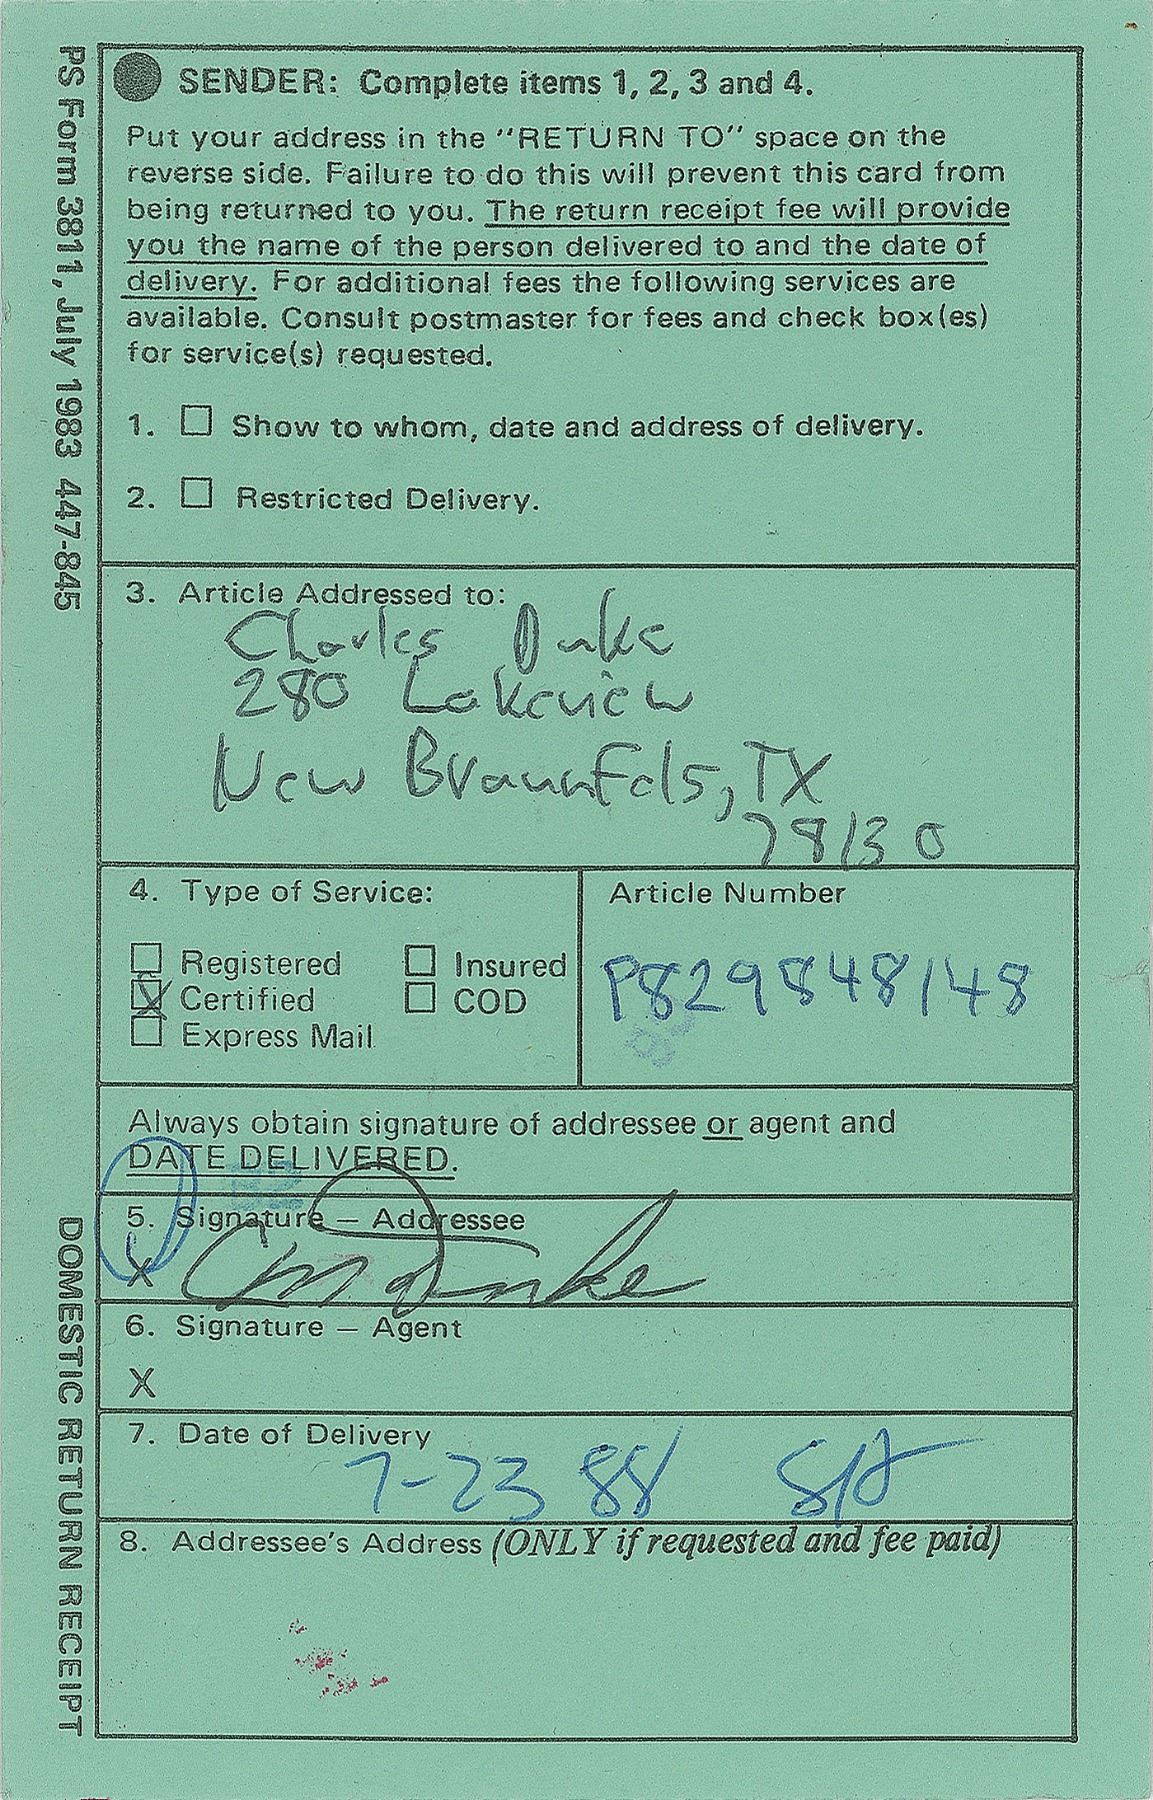 PS Form 3811, July 1983 447-845
SENDER: Complete items 1, 2, 3 and 4.
Put your address in the "RETURN TO" space on the
reverse side. Failure to do this will prevent this card from
being returned to you. The return receipt fee will provide
you the name of the person delivered to and the date of
delivery. For additional fees the following services are
available. Consult postmaster for fees and check box(es)
for service(s) requested.
1. ☐ Show to whom, date and address of delivery.
2. ☐ Restricted Delivery.
3. Article Addressed to:
Charles Duke
280 Lakeview
New Braunfels, TX
78130
4. Type of Service:
☐ Registered ☐ Insured
☒ Certified ☐ COD
☐ Express Mail
Article Number
P829848148
Always obtain signature of addressee or agent and
DATE DELIVERED.
5. Signature – Addressee
X CM Duke
6. Signature – Agent
X
7. Date of Delivery
7-23 88
8. Addressee's Address (ONLY if requested and fee paid)
DOMESTIC RETURN RECEIPT